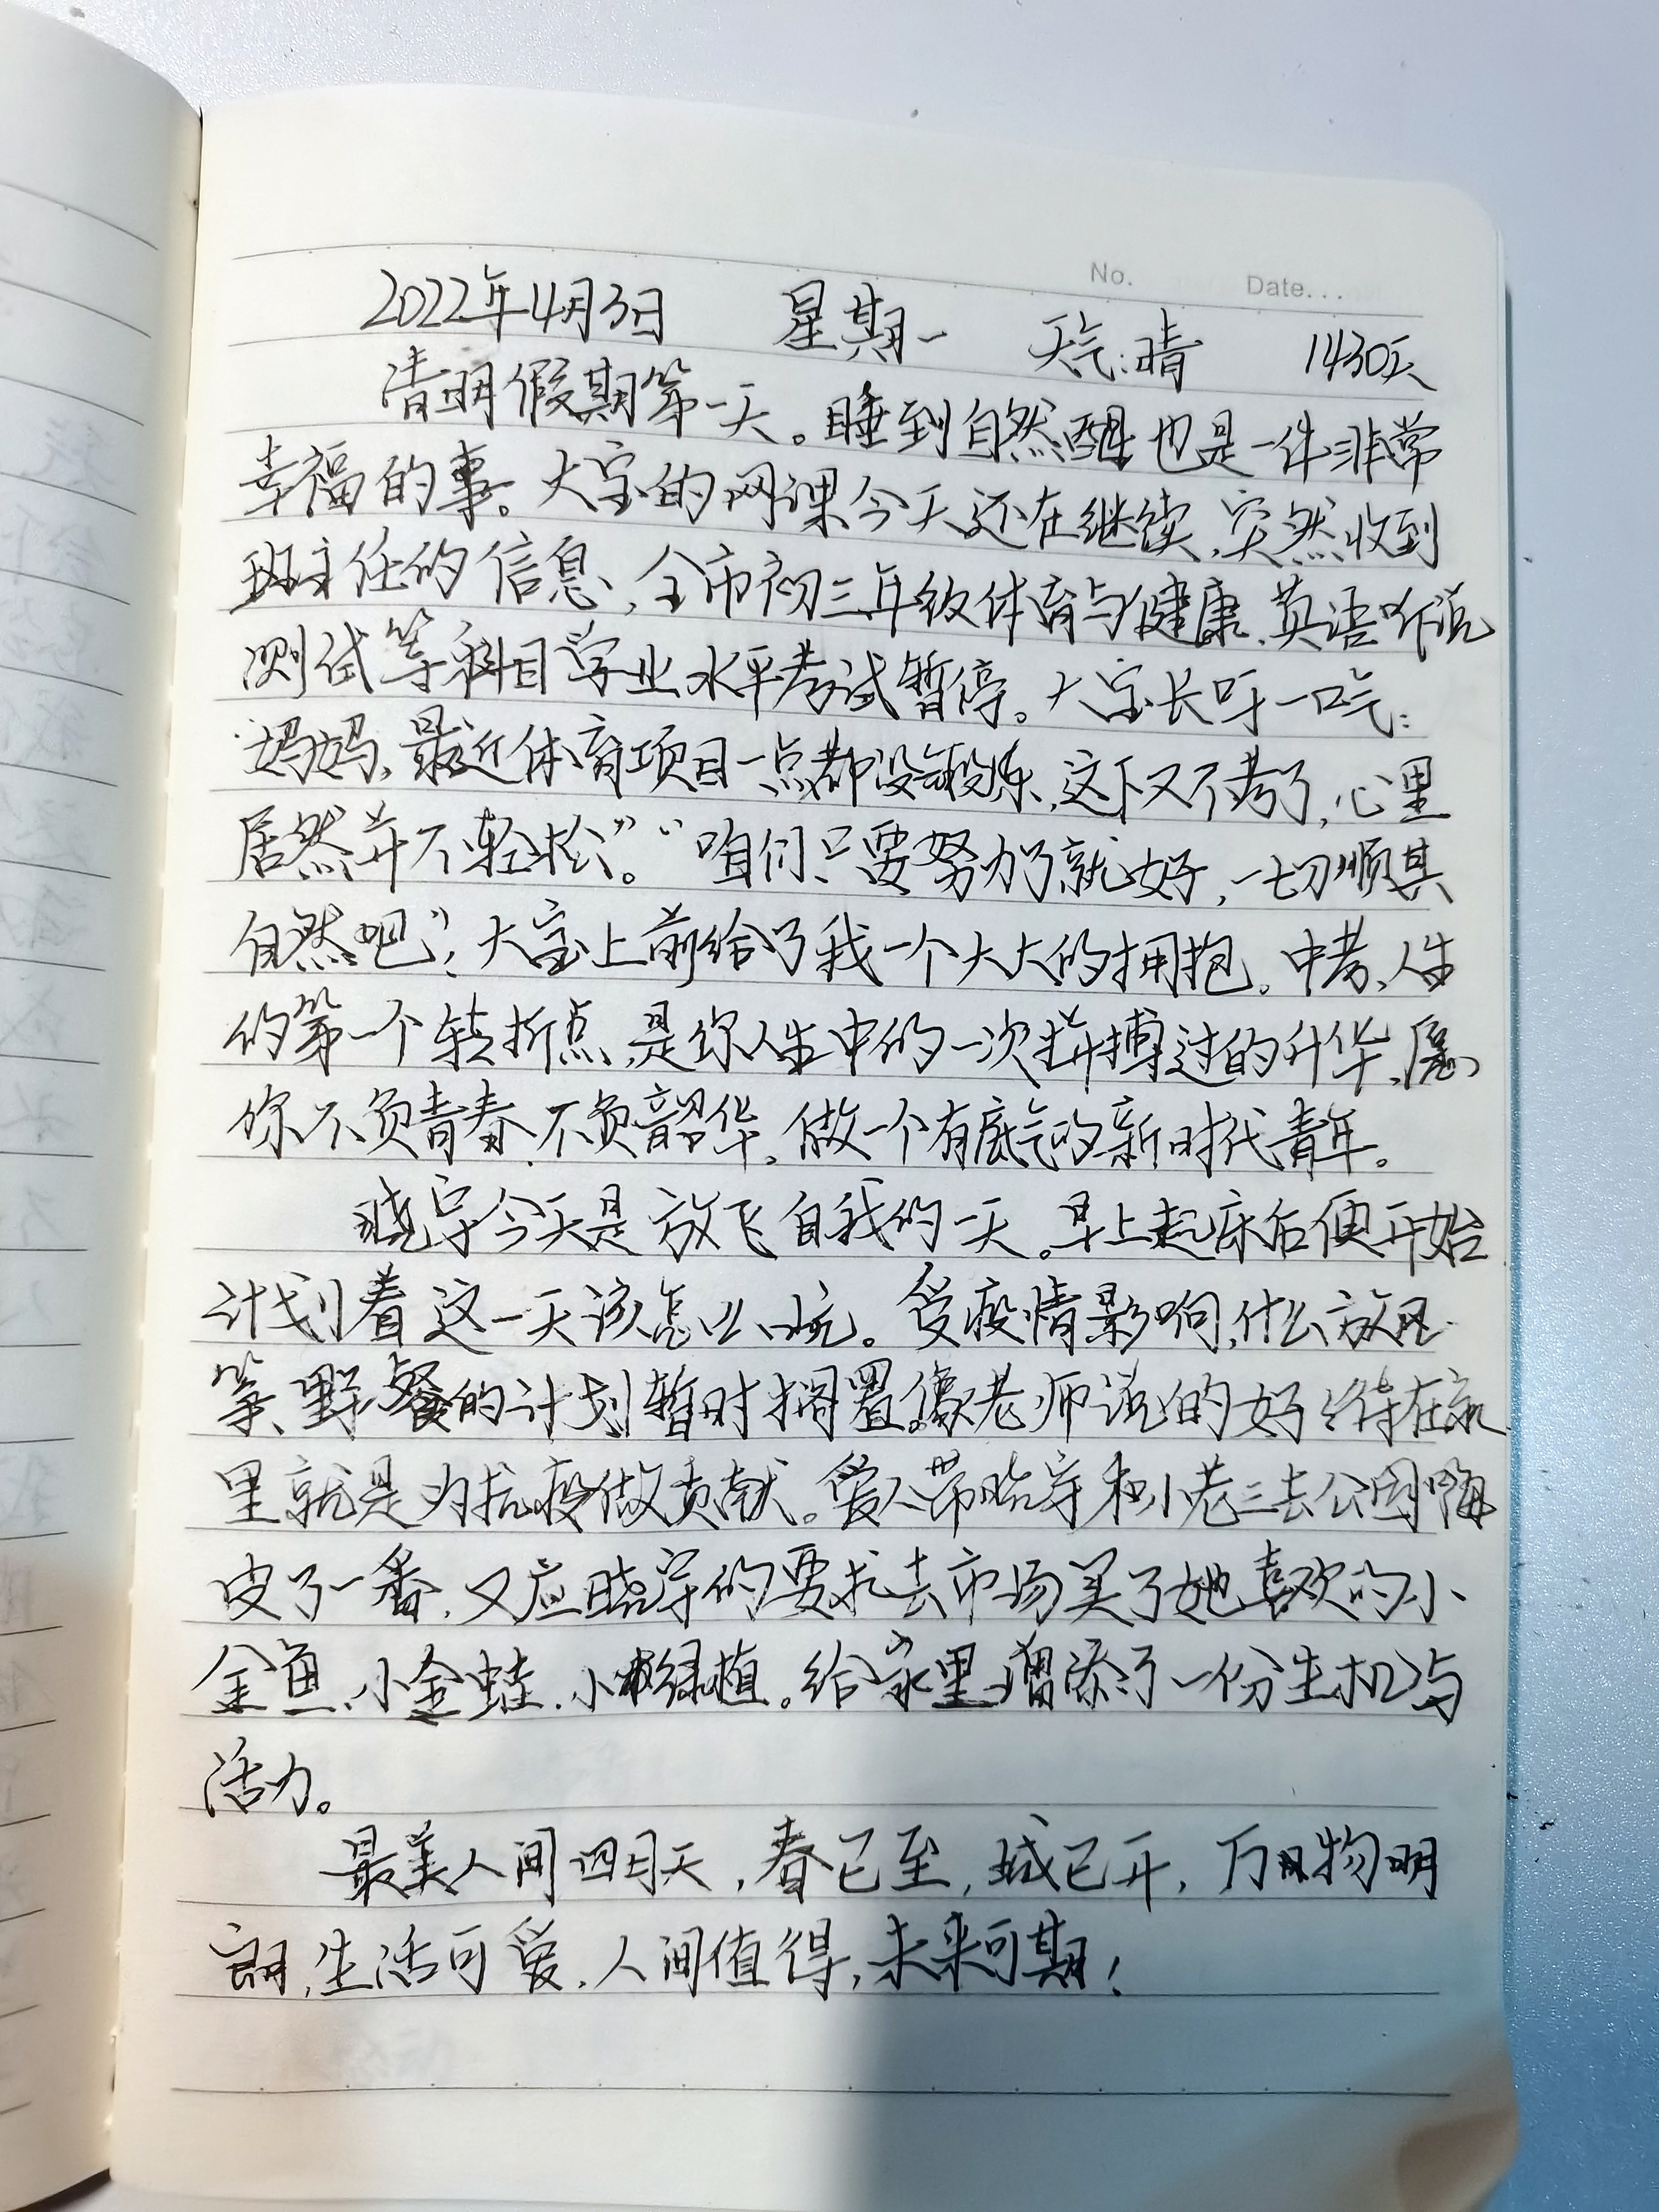 No. Date...
2022年4月3日 星期一 天气:晴 1430天
清明假期第一天。睡到自然醒也是一件非常
幸福的事。大宝的网课今天还在继续,突然收到
班主任的信息,全市初三年级体育与健康、英语听说
测试等科目学业水平考试暂停。大宝长吁一口气:
妈妈,最近体育项目一点都没锻炼,这下又不考了,心里
居然并不轻松”。“咱们只要努力了就好,一切顺其
自然吧”,大宝上前给了我一个大大的拥抱。中考、人生
的第一个转折点,是你人生中的一次拼搏过的升华,愿
你不负青春、不负韶华,做一个有底气的新时代青年。
晓宇今天是放飞自我的一天。早上起床后便开始
计划着这一天该怎么玩。受疫情影响,什么放风
筝、野餐的计划暂时搁置。像老师说的好:待在家
里就是为抗疫做贡献。爱人带晓宇和小老三去公园嗨
皮了一番,又应晓宇的要求去市场买了她喜欢的小
金鱼、小金蛙、小绿植。给家里增添了一份生机与
活力。
最美人间四月天,春已至,城已开,万物明
朗,生活可爱,人间值得,未来可期!